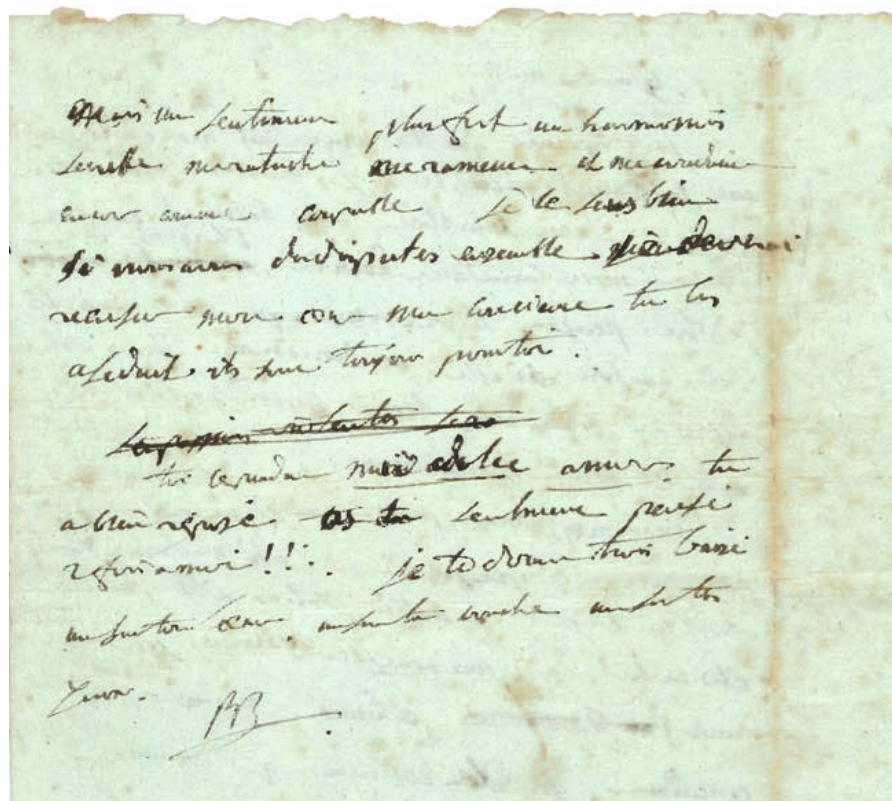 Mais un sentiment plus fort un harmonies
secrette me ratache me ramene et me conduira
encor comme coupable je le sens bien
Si nous avons des disputes ensemble
recuser mon cœur ma conscience tu les
a séduit ils sont toujour pour toi.
toi cependan mio dolce amor tu
a bien reposé as tu seulment pensé
2 fois a moi !!! je te donne trois baisé
un sur ton cœur un sur ta bouche un sur tes
yeux.
BB